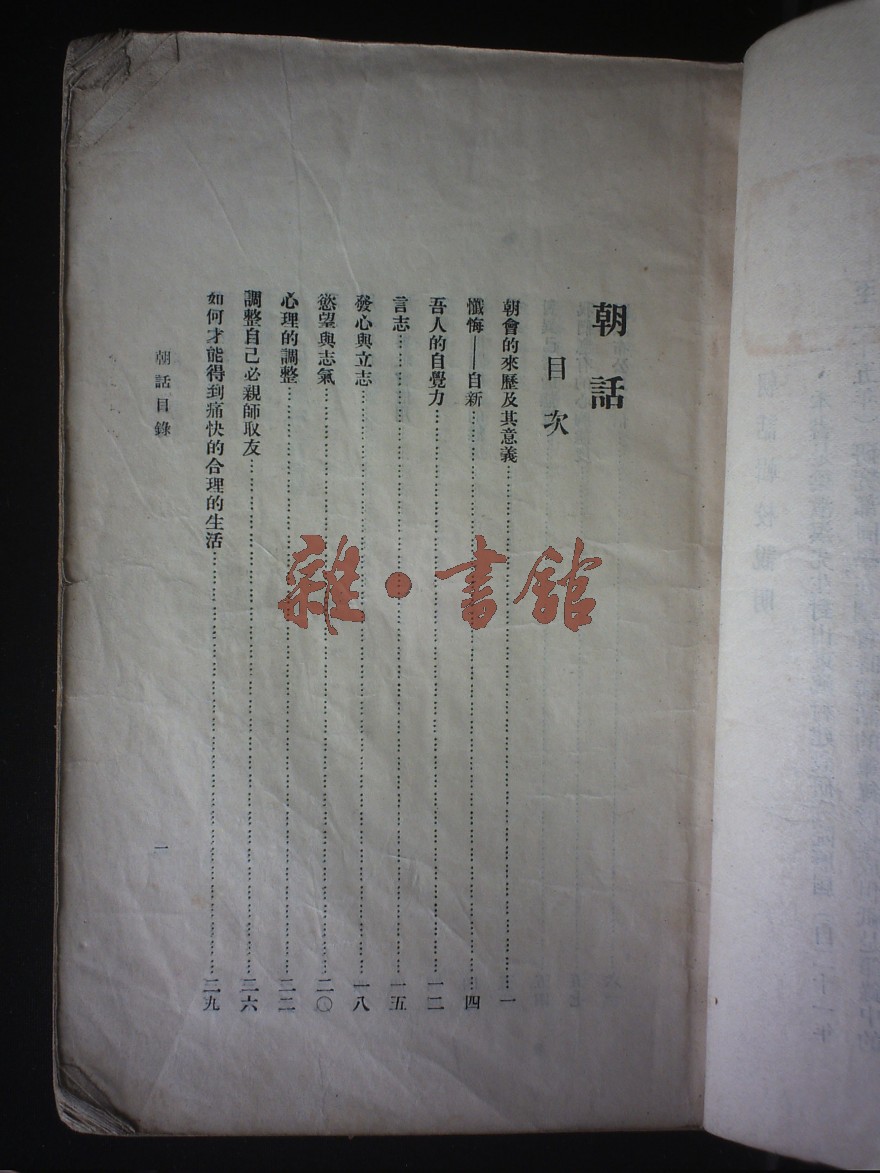 朝話
目次
朝會的來歷及其意義……一
懺悔——自新……四
吾人的自覺力……一二
言志……一五
發心與立志……一八
慾望與志氣……二〇
心理的調整……二二
調整自己必親師取友……二六
如何才能得到痛快的合理的生活……二九
朝話目錄
一
雜·書館